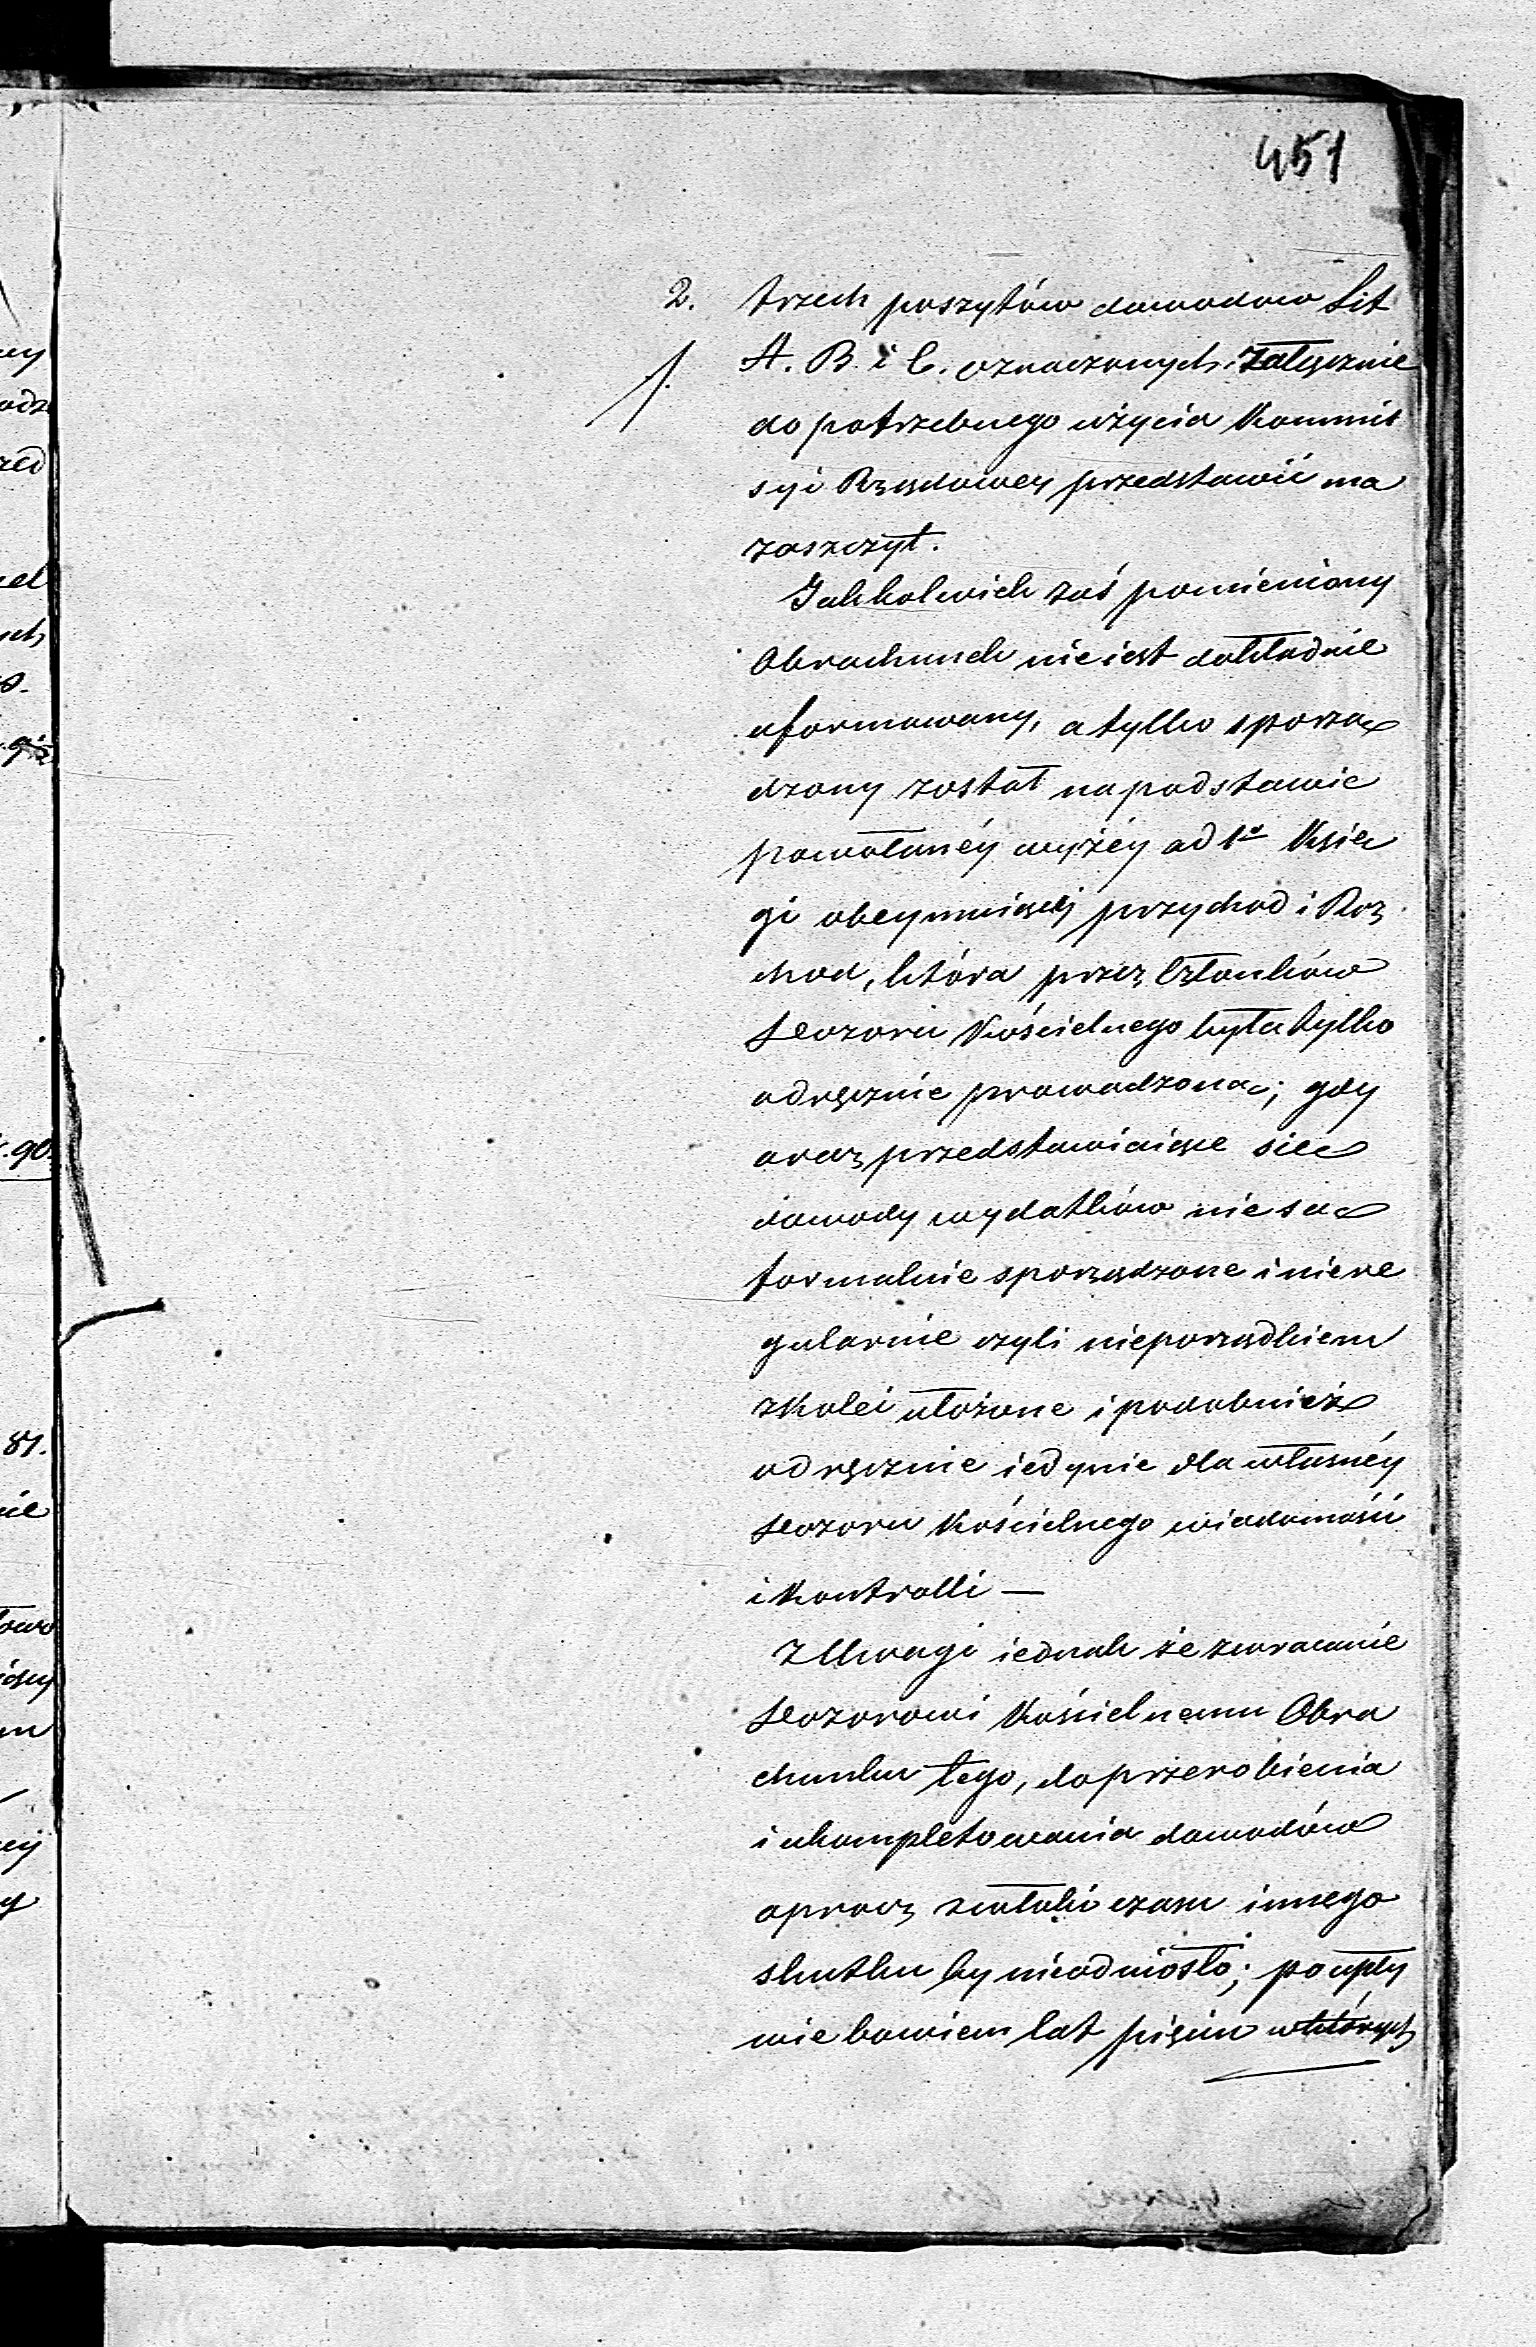 451
2. trzech poszytów dowodow Lit
A. B. i C. oznaczonych załącznie
do potrzebnego użycia Kommis
syi Rządowey przedstawić ma
zaszczyt.
Jakkolwiek zaś pomieniony
Obrachunek nie iest dokładnie
uformowany, a tylko sporzą
dzony został na podstawie
powołanéy wyżéy ad 1º Księ
gi obeymuiącéj przychod i Roz
chod, która przez Członków
Dozoru Kościelnego była tylko
odręcznie prowadzona; gdy
oraz przedstawiaiące się
dowody wydatków nie są
formalnie sporządzone i niere
gularnie czyli nieporządkiem
z kolei ułożone i podobnież
odręcznie iedynie dla własnéy
Dozoru Kościelnego wiadomości
i Kontrolli —
Z Uwagi iednak że zwracanie
Dozorowi Kościelnemu Obra
chunku tego, do przerobienia
i ukompletowania dowodów
oprocz zwłoki czasu innego
skutku by nieodniosło; po upły
wie bowiem lat pięciu w których